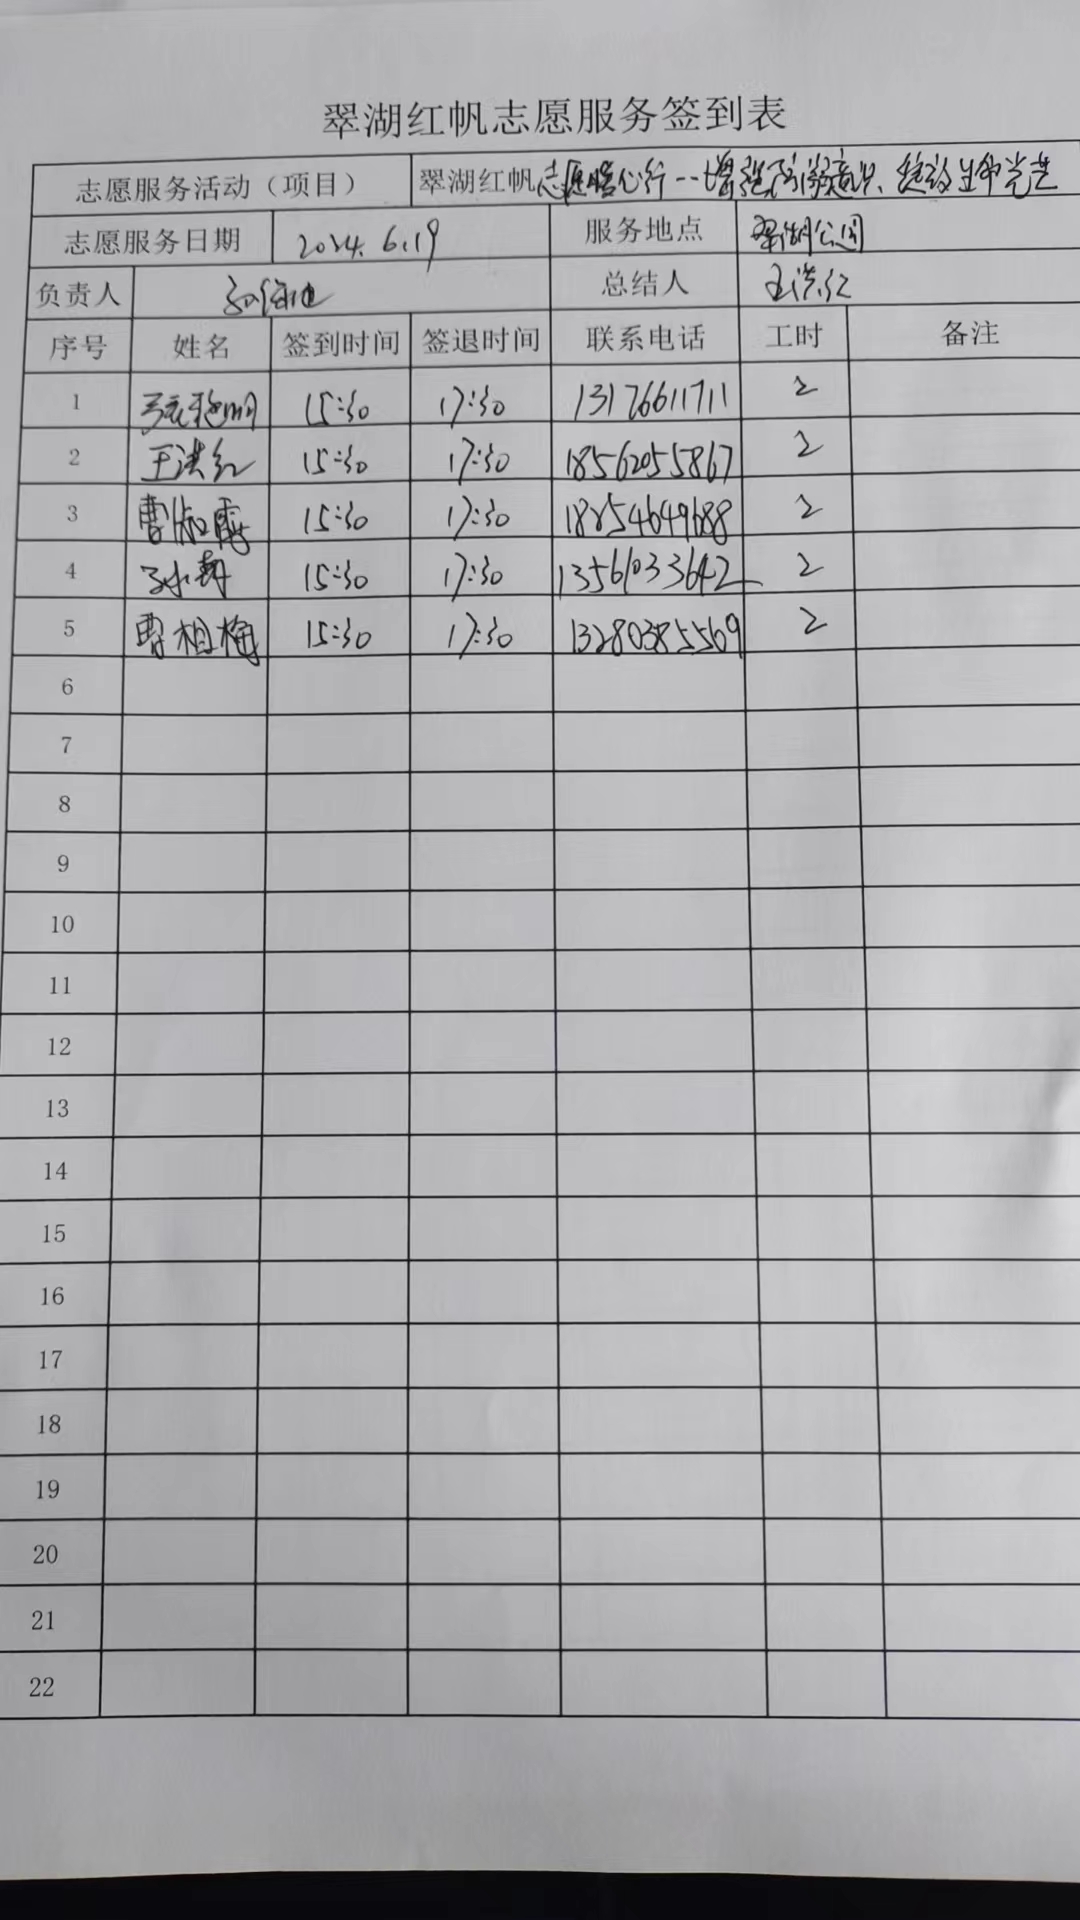 翠湖红帆志愿服务签到表
志愿服务活动（项目） 翠湖红帆志愿暖心行--增强防溺意识、绽放生命光芒
志愿服务日期 2024.6.19 服务地点 翠湖公园
负责人 总结人 王洪红
序号 姓名 签到时间 签退时间 联系电话 工时 备注
1 15:30 17:30 13176611711 2
2 王洪红 15:30 17:30 18562055867 2
3 曹淑霞 15:30 17:30 18254649688 2
4 15:30 17:30 13561033642 2
5 曹相梅 15:30 17:30 13280385569 2
6
7
8
9
10
11
12
13
14
15
16
17
18
19
20
21
22